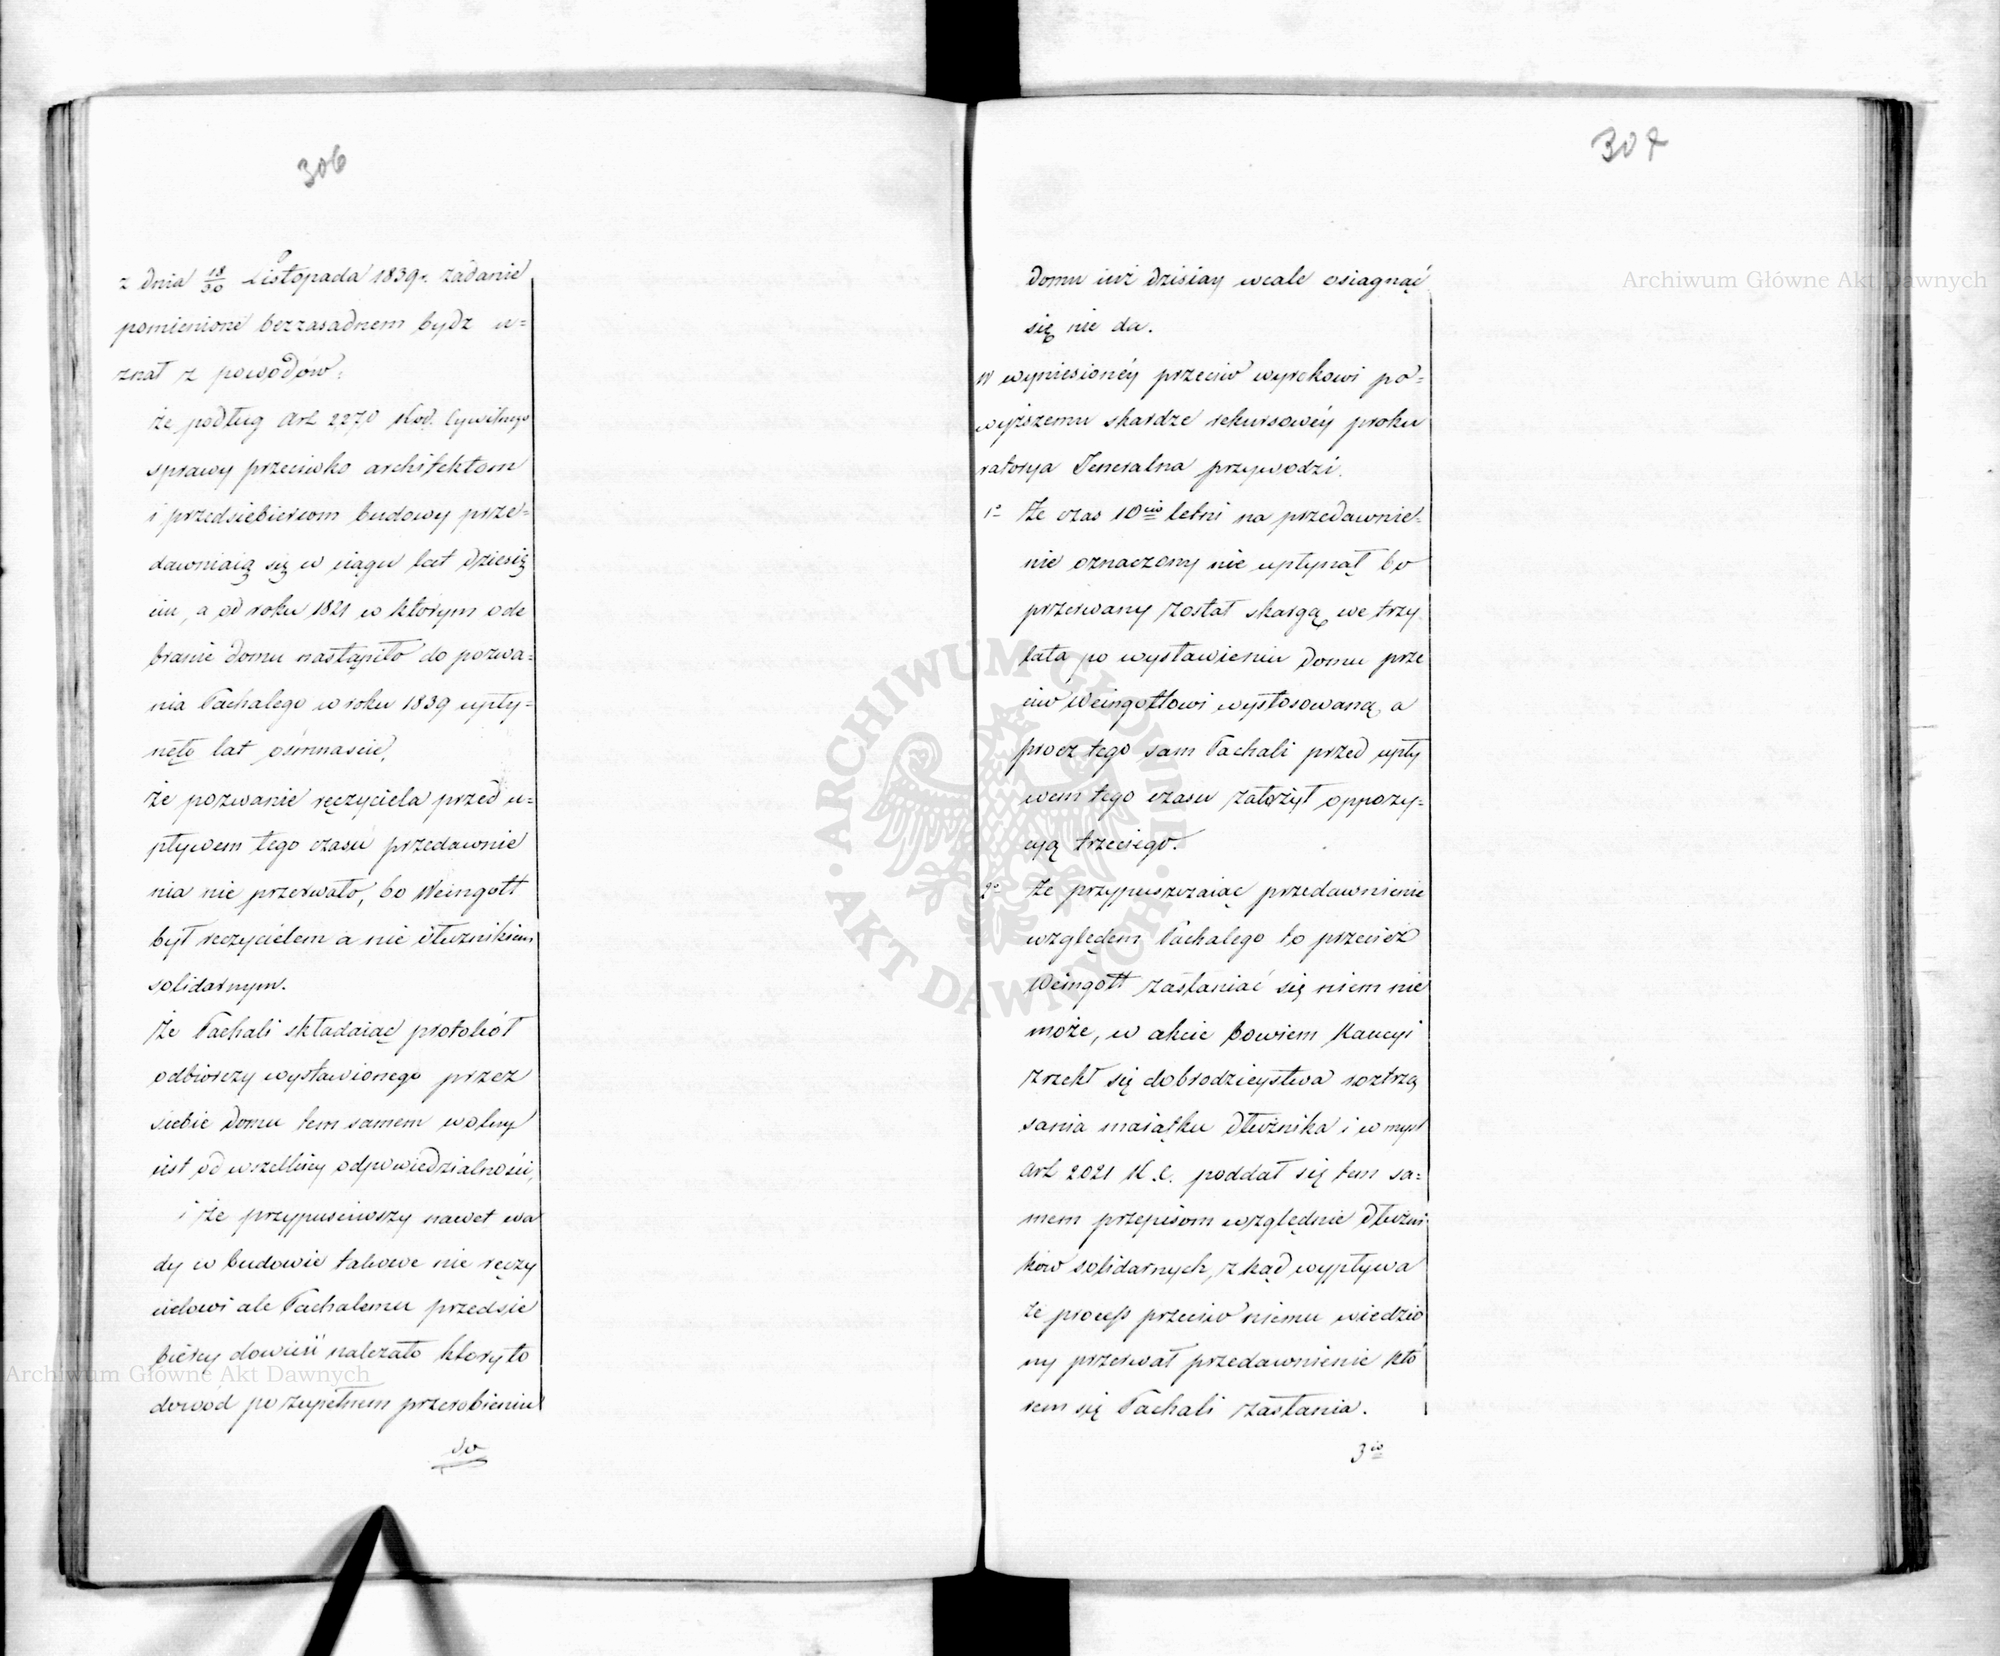 306
z dnia 18/30 Listopada 1839r. żądanie
pomienione bezzasadnem bydz u=
znał z powodów:
że podług Art 2270 Kod. Cywilnego
sprawy przeciwko architektom
i przedsiebiercom budowy prze=
dawniaią się w ciągu lat dziesię
ciu, a od roku 1821 w którym ode
branie domu nastąpiło do pozwa=
nia Pachalego w roku 1839 upły=
nęło lat ośmnaście,
że pozwanie ręczyciela przed u=
pływem tego czasu przedawnie
nia nie przerwało, bo Weingott
był ręczycielem a nie dłużnikiem
solidarnym.
Że Pachali składaiąc protokół
odbiorczy wystawionego przez
siebie domu tem samem wolny
iest od wszelkiey odpowiedzialności,
i że przypuściwszy nawet wa
dy w budowie takowe nie ręczy
cielowi ale Pachalemu przedsie
biercy dowieść należało który to
dowód po zupełnem przerobieniu
do
307
domu iuż dzisiay wcale osiągnąć
się nie da.
W wyniesionéy przeciw wyrokowi po=
wyższemu skardze rekursowéy proku
ratorya Jeneralna przywodzi.
1o Że czas 10cio letni na przedawnie=
nie oznaczony nie upłynął bo
przerwany został skargą we trzy
lata po wystawieniu domu prze
ciw Weingottowi wystosowaną, a
procz tego sam Pachali przed upły
wem tego czasu założył oppozy=
cyą trzeciego.
2o Że przypuszczaiąc przedawnienie
względem Pachalego to przecież
Weingott zasłaniać się niem nie
może, w akcie bowiem Kaucyi
zrzekł się dobrodzieystwa roztrzą
sania maiątku dłużnika i w myśl
Art 2021 K.C. poddał się tem sa=
mem przepisom względnie dłużni
ków solidarnych, z kąd wypływa
że process przeciw niemu wiedzio
ny przerwał przedawnienie któ
rem się Pachali zasłania.
3io
Archiwum Główne Akt Dawnych
Archiwum Główne Akt Dawnych
ARCHIWUM GŁÓWNE · AKT DAWNYCH ·